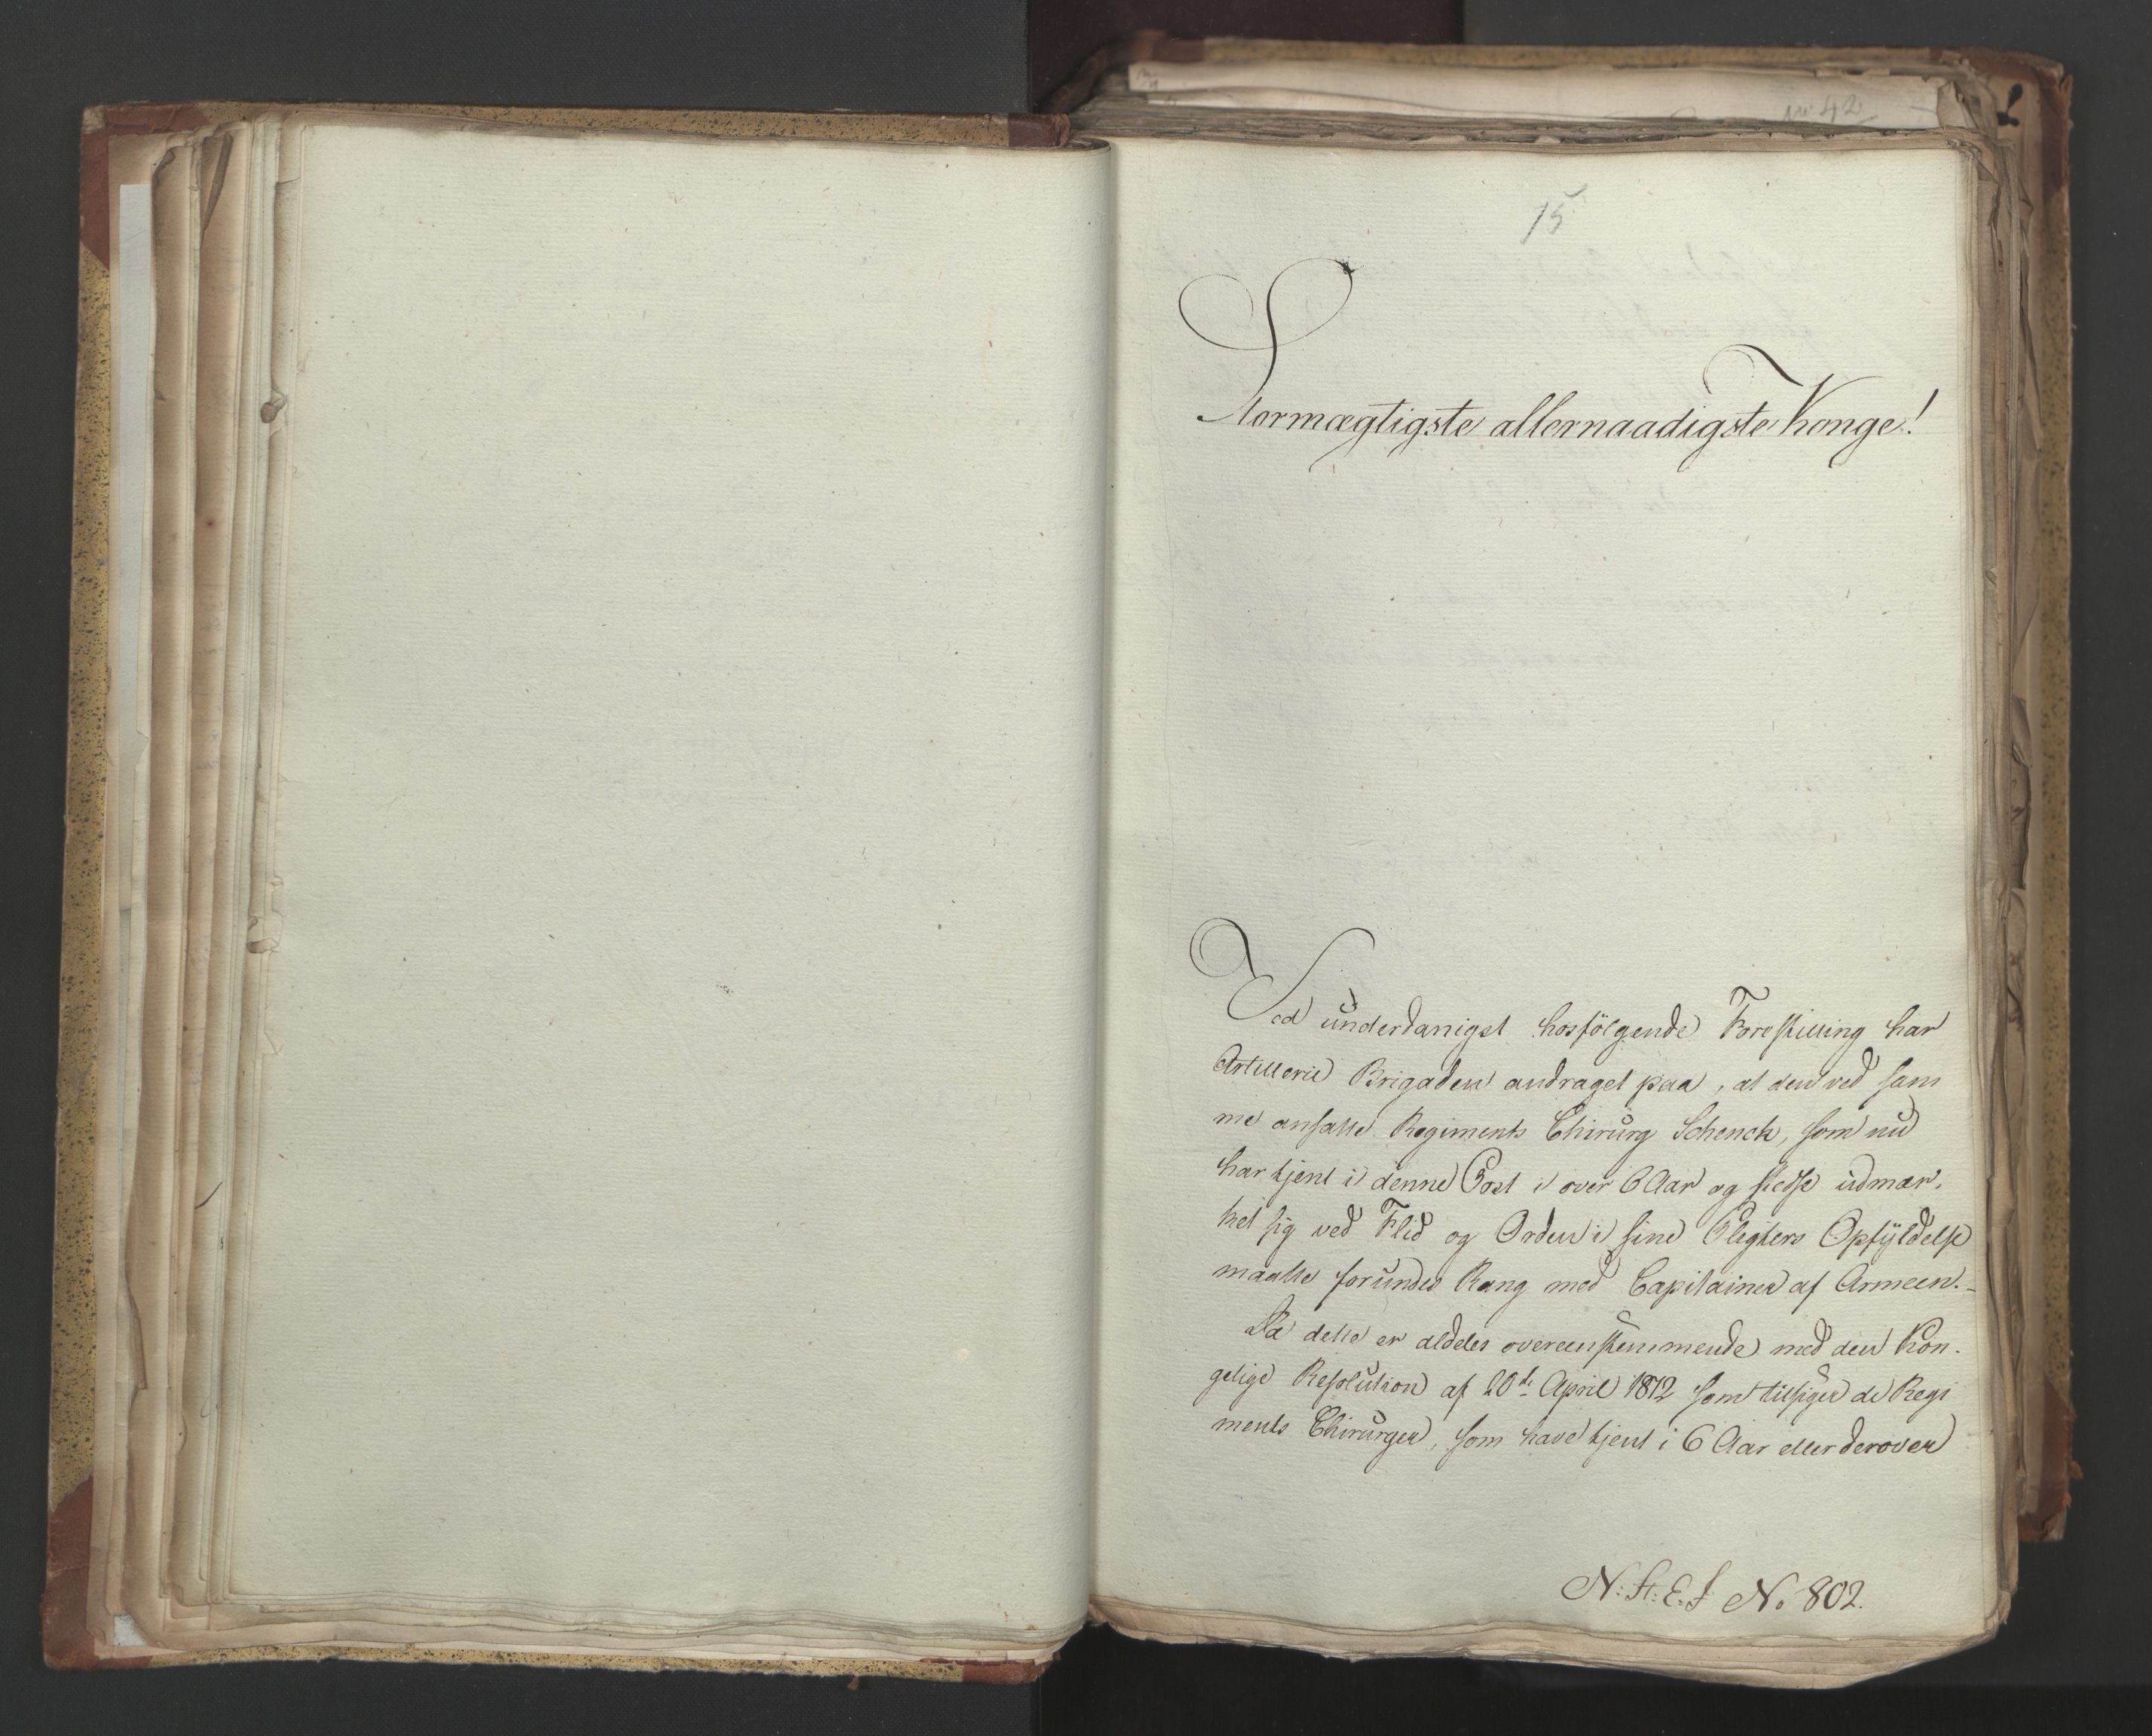 No 42
15
Stormægtigste allernaadigste Konge!
Ved underdanigst hosfölgende Forestilling har
Artillerie Brigaden andraget paa, at den ved sam
me ansatte Regiments Chirurg Schenck, som nu
har tjent i denne Post i over 6 Aar og stedse udmær-
ket sig ved Flid og Orden i sine Pligters Opfÿldelse
maatte forundes Rang med Capitainer af Armeen.-
Da dette er aldeles overeenstemmende med den Kon-
gelige Resolution af 20de April 1812 som tilsiger de Regi
ments Chirurger, som have tjent i 6 Aar eller derover
N: St: E. No 802.